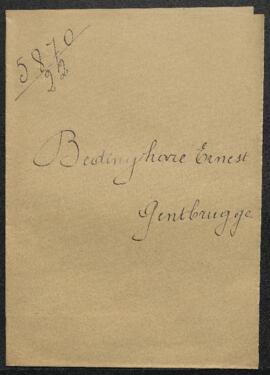 5870
22
Bedinghore Ernest
Gentbrugge